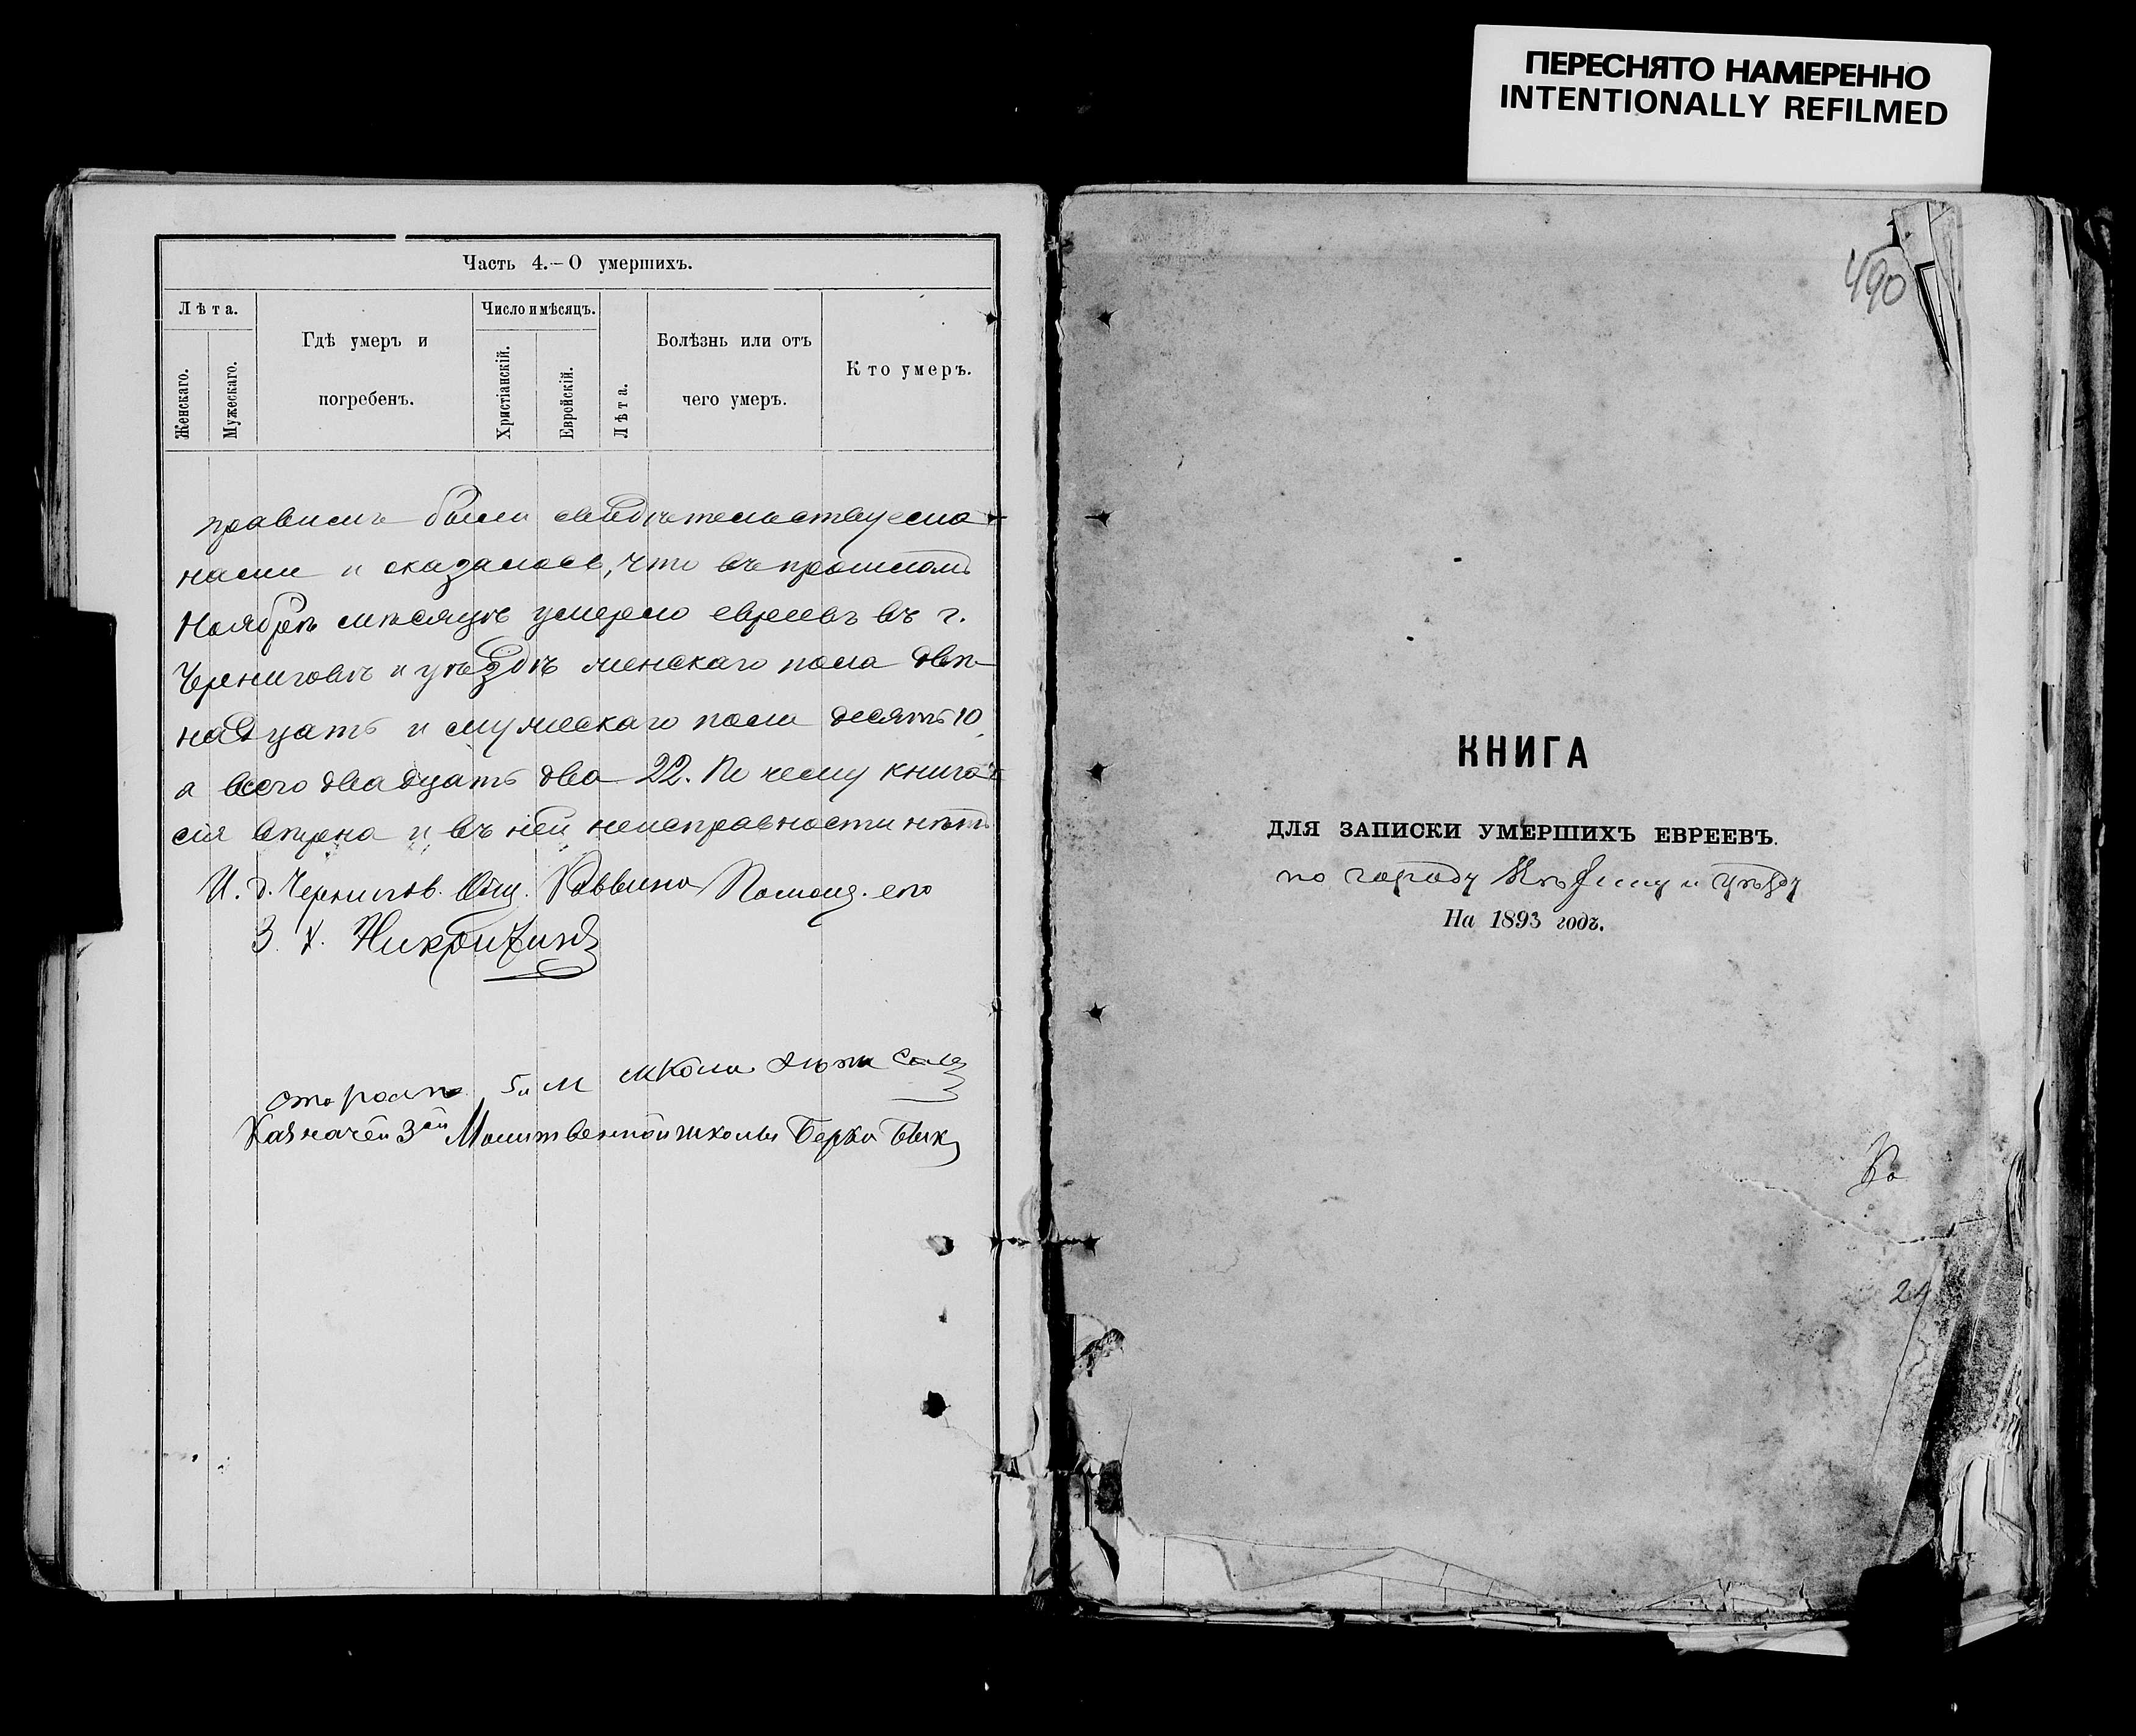 ПЕРЕСНЯТО НАМЕРЕННО
INTENTIONALLY REFILMED
Часть 4.—О умершихъ.
Лѣта.
Женскаго.
Мужескаго.
Гдѣ умеръ и
погребенъ.
Число и мѣсяцъ.
Христіанскій.
Еврейскій.
Лѣта.
Болѣзнь или отъ
чего умеръ.
Кто умеръ.
были свидѣтельствуема
нами и оказалось, что въ прошломъ
Ноябрѣ мѣсяцѣ умерло евреевъ въ г.
Черниговѣ и уѣздѣ женскаго пола двѣ-
надцать и мужескаго пола десять 10,
а всего двадцать два 22. По чему книга
сія вѣрна и въ ней неисправности нѣтъ
И. д. Чернигов. Общ. Раввина Помощ. его
З. Х.
5й М школы
Казначей 3ей Молитвенной школы Берко Бык
490
КНИГА
ДЛЯ ЗАПИСКИ УМЕРШИХЪ ЕВРЕЕВЪ.
по городу Нѣжину и уѣзду
На 1893 годъ.